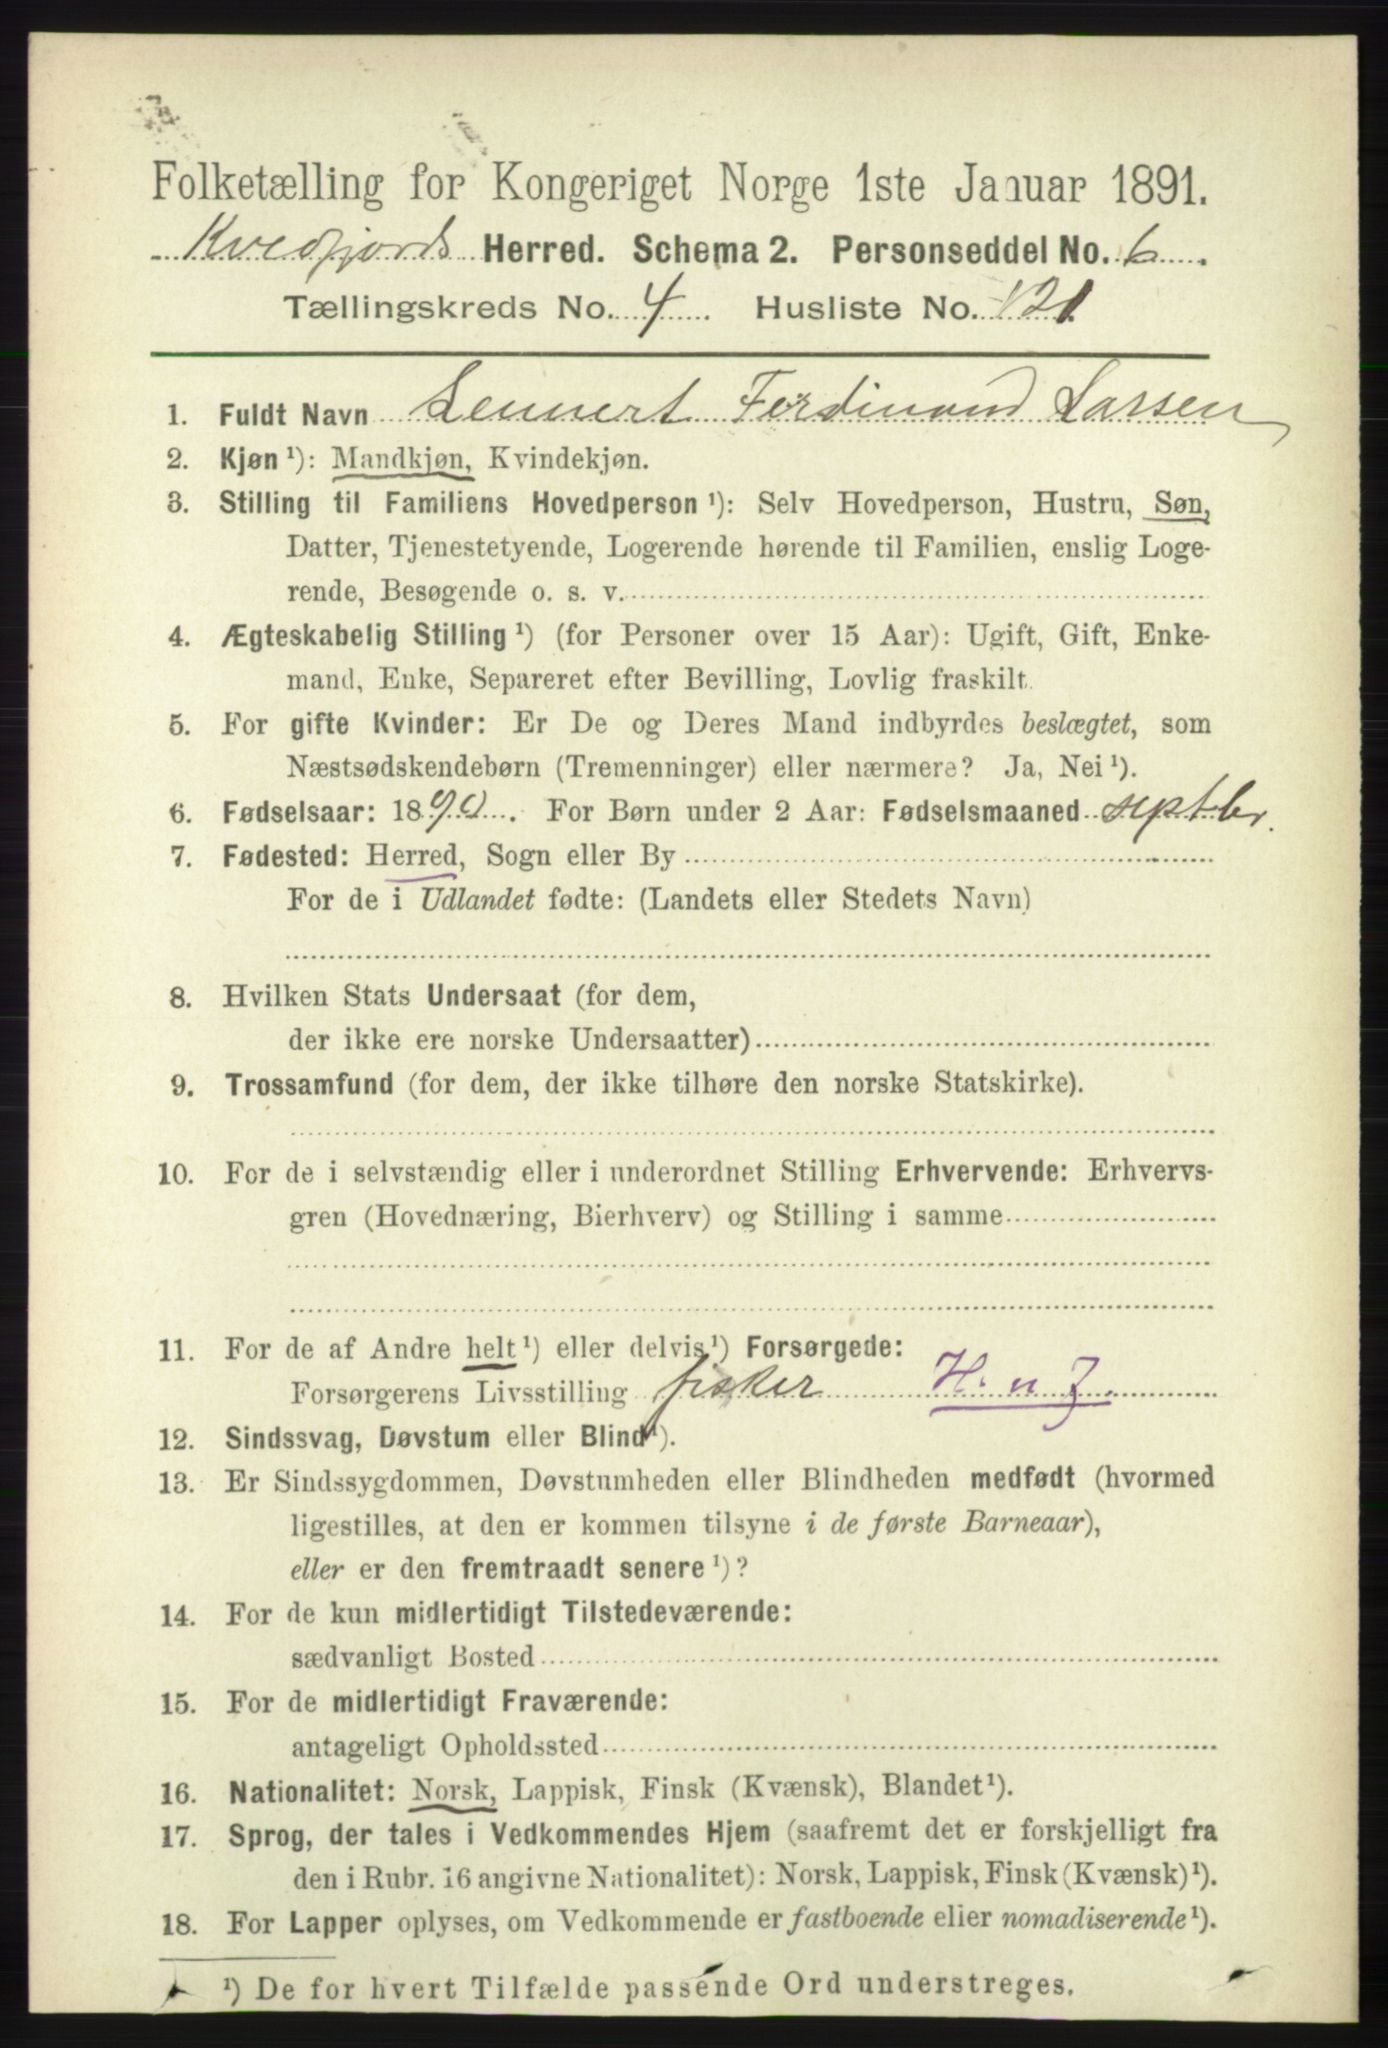 Folketælling for Kongeriget Norge 1ste Januar 1891.
Kvedfjords Herred. Schema 2. Personseddel No. 6
Tællingskreds No. 4 Husliste No. 121
1. Fuldt Navn Lennert Ferdinand Larsen
2. Kjøn ¹): Mandkjøn, Kvindekjøn.
3. Stilling til Familiens Hovedperson ¹): Selv Hovedperson, Hustru, Søn,
Datter, Tjenestetyende, Logerende hørende til Familien, enslig Loge-
rende, Besøgende o. s. v.
4. Ægteskabelig Stilling ¹) (for Personer over 15 Aar): Ugift, Gift, Enke-
mand, Enke, Separeret efter Bevilling, Lovlig fraskilt.
5. For gifte Kvinder: Er De og Deres Mand indbyrdes beslægtet, som
Næstsødskendebørn (Tremenninger) eller nærmere? Ja, Nei ¹).
6. Fødselsaar: 1890. For Børn under 2 Aar: Fødselsmaaned septbr.
7. Fødested: Herred, Sogn eller By
For de i Udlandet fødte: (Landets eller Stedets Navn)
8. Hvilken Stats Undersaat (for dem,
der ikke ere norske Undersaatter)
9. Trossamfund (for dem, der ikke tilhøre den norske Statskirke).
10. For de i selvstændig eller i underordnet Stilling Erhvervende: Erhvervs-
gren (Hovednæring, Bierhverv) og Stilling i samme
11. For de af Andre helt ¹) eller delvis ¹) Forsørgede:
Forsørgerens Livsstilling fisker H. n J.
12. Sindssvag, Døvstum eller Blind ¹).
13. Er Sindssygdommen, Døvstumheden eller Blindheden medfødt (hvormed
ligestilles, at den er kommen tilsyne i de første Barneaar),
eller er den fremtraadt senere ¹)?
14. For de kun midlertidigt Tilstedeværende:
sædvanligt Bosted
15. For de midlertidigt Fraværende:
antageligt Opholdssted
16. Nationalitet: Norsk, Lappisk, Finsk (Kvænsk), Blandet ¹).
17. Sprog, der tales i Vedkommendes Hjem (saafremt det er forskjelligt fra
den i Rubr. 16 angivne Nationalitet): Norsk, Lappisk, Finsk (Kvænsk) ¹).
18. For Lapper oplyses, om Vedkommende er fastboende eller nomadiserende ¹).
¹) De for hvert Tilfælde passende Ord understreges.